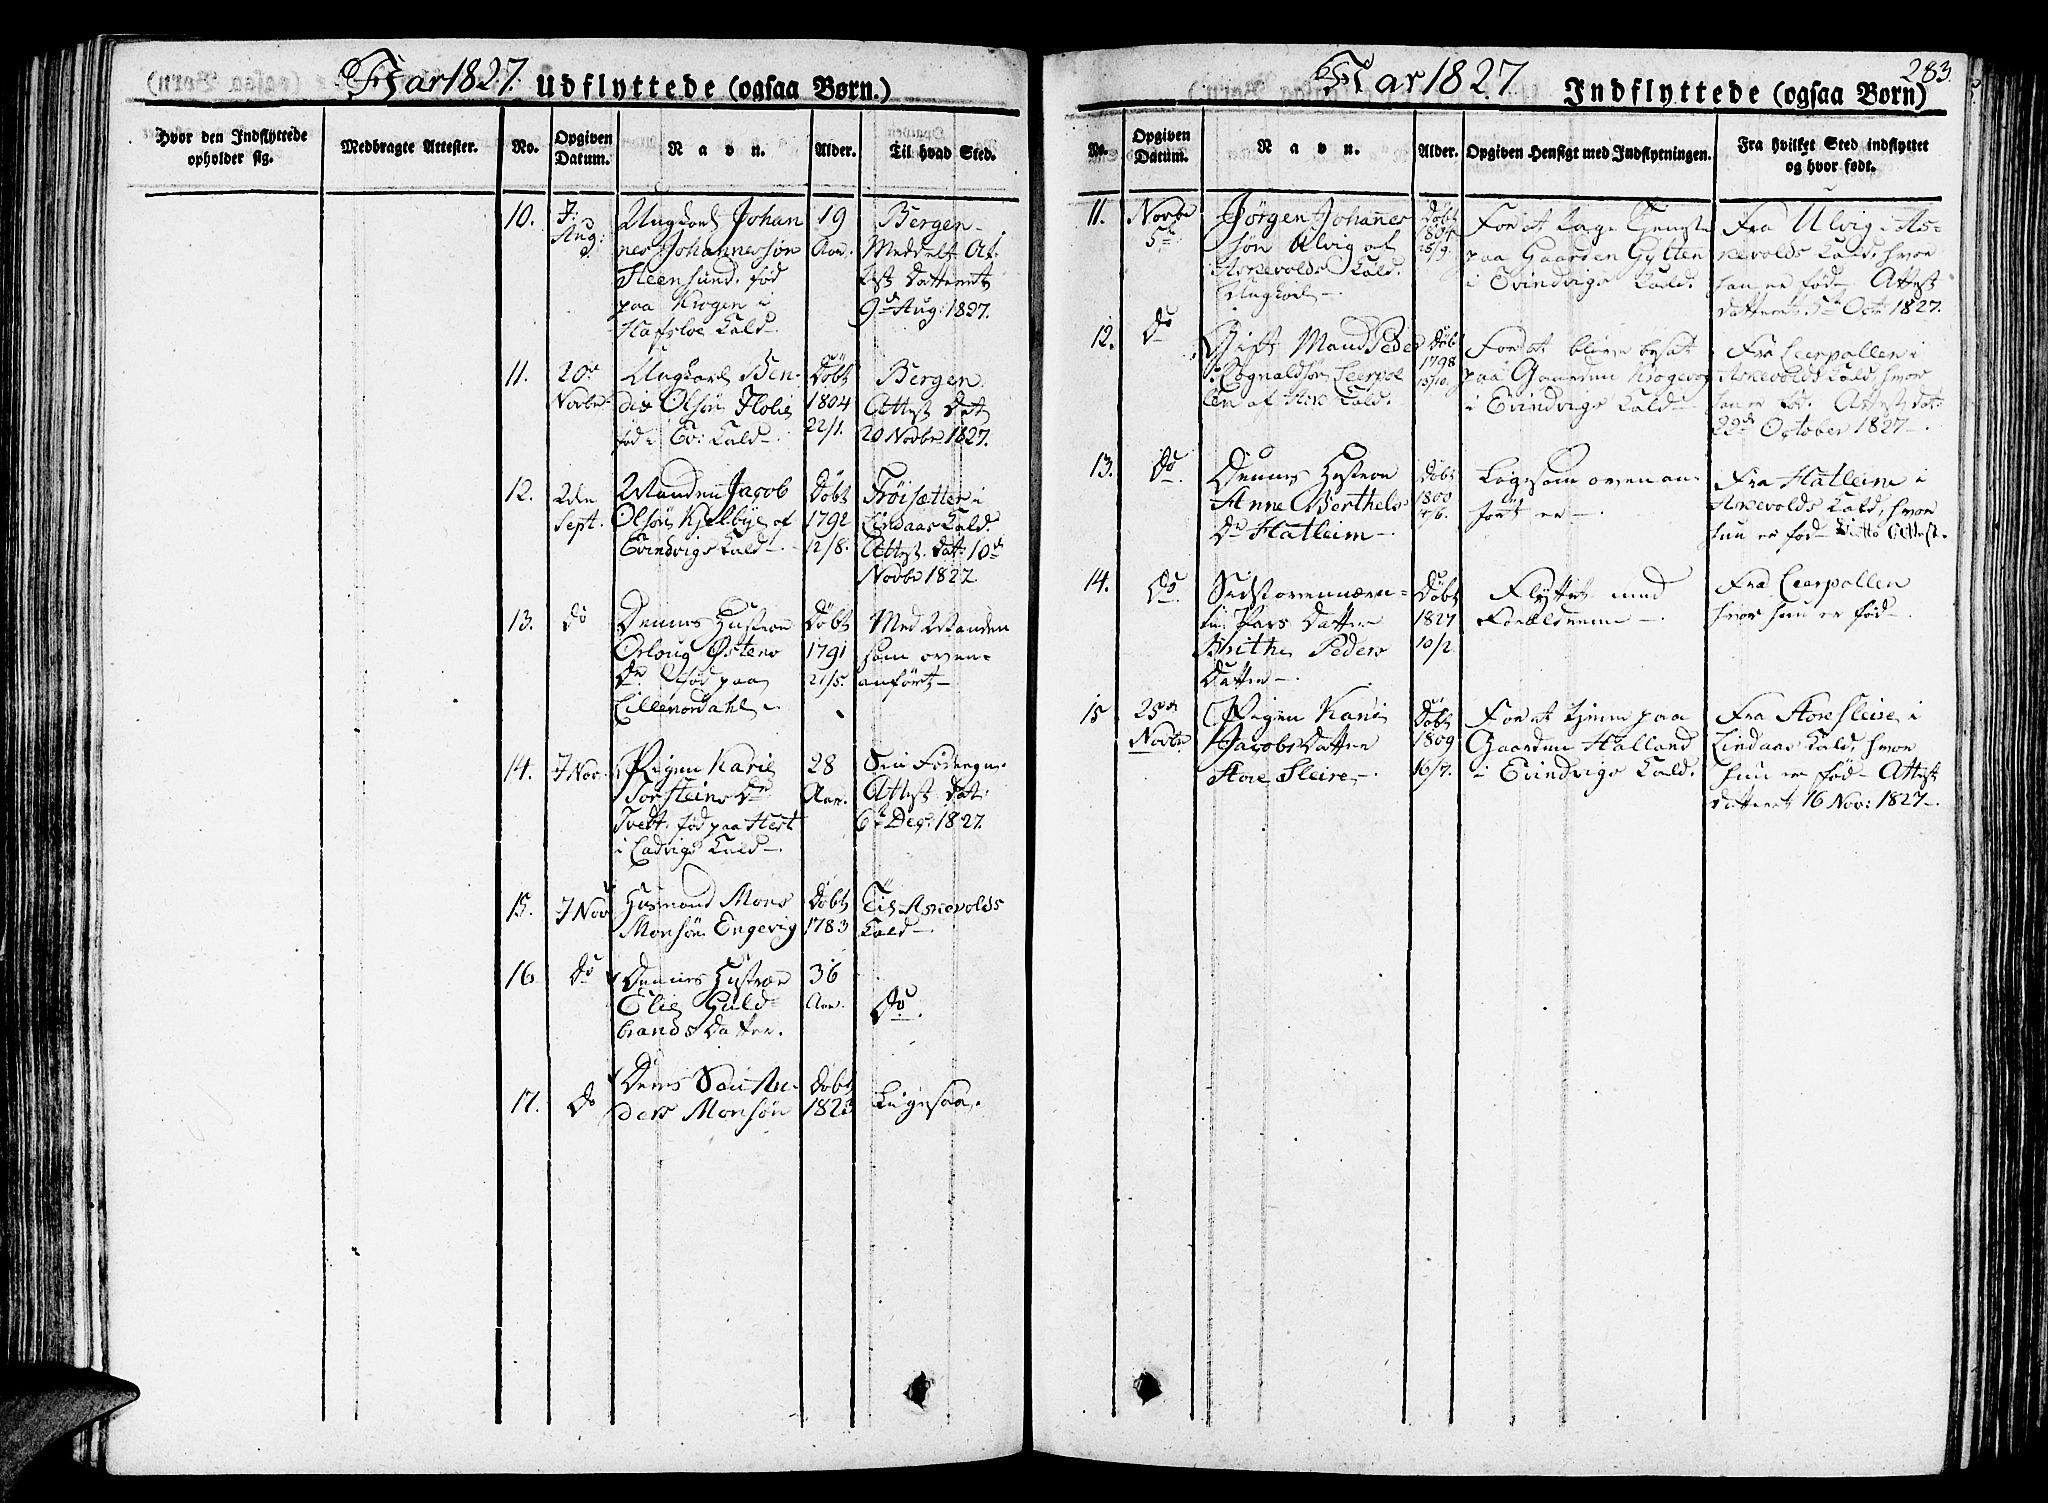 Aar 1827. Udflyttede (ogsaa Børn.)
Hvor den Indflyttede
opholder sig.
Medbragte Attester.
No.
Opgiven
Datum.
Navn.
Alder.
Til hvad Sted.
10.
7:
Aug:
Ungkarl Johan
nes Johannessøn
Steensund. fød
paa Krogen i
Hafsloe Kald
19
Aar.
Bergen
Meddelt At-
test datteret
9de Aug: 1827.
11.
20de
Novbr
Ungkarl Ben-
dix Olsøn Flolie
fød i Ev: Kald
Døbt
1804
22/1.
Bergen.
Attest Dat
20 Novbr 1827.
12.
2den
Sept.
Manden Jacob
Olsøn Kjelbye af
Evindvigs Kald
Døbt
1792
12/8.
Frøisætter i
Lindaas Kald.
Attest. Dat: 10de
Novbr 1827
13.
Do
Dennes Hustroe
Orloug Østens
Dr. fød paa
Lillenordahl.
Døbt
1791
27/5.
Med Manden
som oven-
anført
14.
7 Nov.
Pigen Karie
Torsteins Dr
Tvedt. fød paa Hest
i Ladvigs Kald
28
Aar.
Sin Fødeegn.
Attest dat:
6te Dec: 1827.
15.
7 Nov
Husmand Mons
Monsøn Engevig
Døbt
1783
Til Askevolds
Kald
16
Do
Dennes Hustroe
Elie Guld-
brands Datter.
36
Aar.
Do.
17.
Do
Deres Søn An-
ders Monsøn
Døbt
1823
Ligesaa.
Aar 1827 Indflyttede (ogsaa Børn)
283.
No.
Opgiven
Datum.
Navn.
Alder.
Opgiven Hensigt med Indflytningen.
Fra hvilket Sted indflyttet
og hvor født.
11.
Novbr
5te
Jørgen Johanes
søn Ulvig af
Askevolds Kald.
Ungkarl
Døbt
1804
For at tage Tjeneste
paa Gaarden Gytten
i Evindvigs Kald.
Fra Ulvig i As-
kevolds Kald, hvor
han er fød. Attest
datteret 5te Oct 1827.
12.
Do
Gift Mand Peder
Rognaldsøn Leerpol
len af Kald.
Døbt
1798
15/10.
For at blive bosat
paa Gaarden Krogevog
i Evindvigs Kald
Fra Leerpollen i
Askevolds Kald, hvor
han er fød. Attest dat:
22de October 1827.
13.
Do
Dennes Hustroe
Anne Berthels
Dr Hatleim
Døbt
1800
Ligesom oven an-
ført er
Fra Hatleim i
Askevolds Kald, hvor
hun er fød Ditto Attest.
14.
Do
Sidstovennævn-
te Pars Datter
Brithe Peders
Datter
Døbt
1827
10/2
Flyttet med
Forældrene
Fra Leerpollen
hvor hun er fød
15
25de
Novbr
Pigen Kari
Jacobs Datter
Store Fleire
Døbt
1809
16/7.
For at tjene paa
Gaarden Halland
i Evindvigs Kald.
Fra Store Fleire i
Lindaas Kald, hvor
hun er fød Attest
datteret 16 Nov: 1827